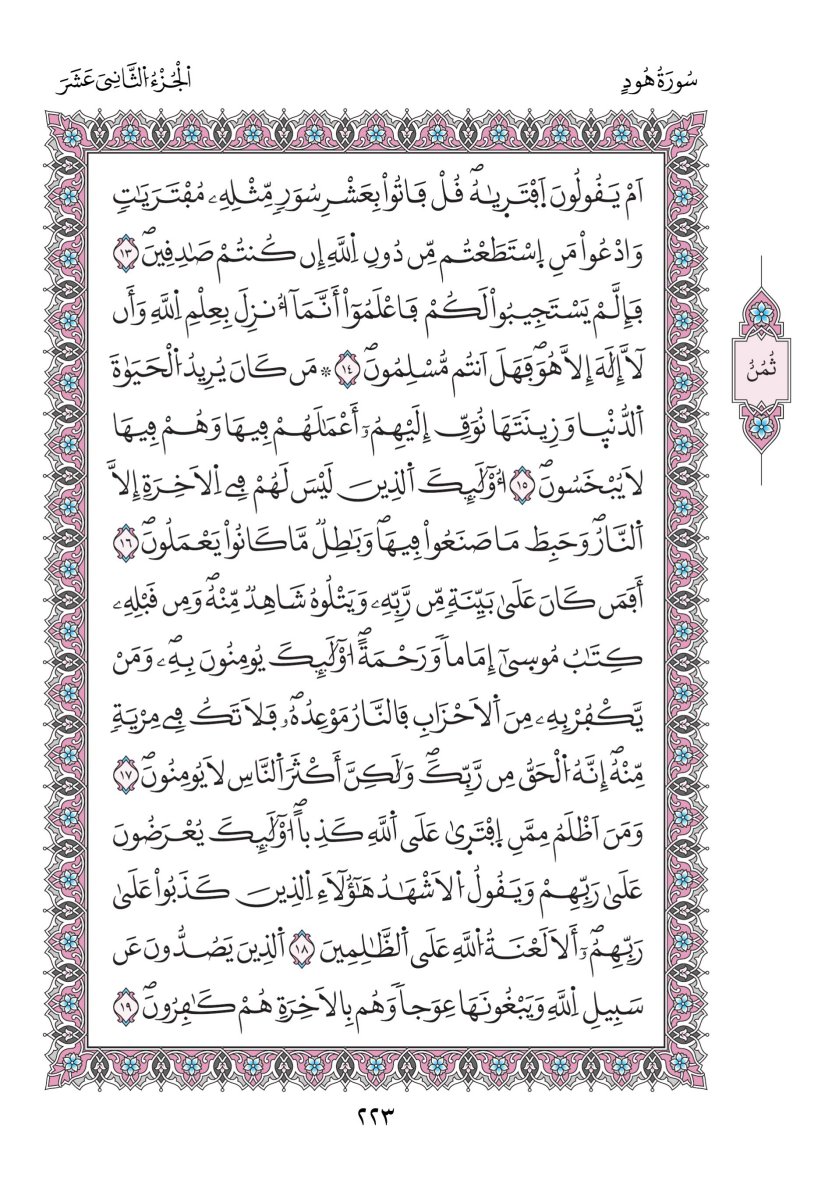 سُورَةُ هُودٍ
اَ۬لْجُزْءُ اُ۬لثَّانِےَ عَشَرَ
اَمْ يَقُولُونَ اَ۪فْتَر۪يٰهُۖ قُلْ فَاتُواْ بِعَشْرِ سُوَرٖ مِّثْلِهِۦ مُفْتَرَيَٰتٖ
وَادْعُواْ مَنِ اِ۪سْتَطَعْتُم مِّن دُونِ اِ۬للَّهِ إِن كُنتُمْ صَٰدِقِينَۖ ١٣
فَإِلَّمْ يَسْتَجِيبُواْ لَكُمْ فَاعْلَمُوٓاْ أَنَّمَآ أُنزِلَ بِعِلْمِ اِ۬للَّهِ وَأَن
لَّآ إِلَٰهَ إِلَّا هُوَۖ فَهَلَ اَنتُم مُّسْلِمُونَۖ ١٤ ۞ مَن كَانَ يُرِيدُ اُ۬لْحَيَوٰةَ
اَ۬لدُّنْي۪ا وَزِينَتَهَا نُوَفِّ إِلَيْهِمُۥٓ أَعْمَٰلَهُمْ فِيهَا وَهُمْ فِيهَا
لَا يُبْخَسُونَۖ ١٥ أُوْلَٰٓئِكَ اَ۬لذِينَ لَيْسَ لَهُمْ فِے اِ۬لَاخِرَةِ إِلَّا
اَ۬لنَّارُۖ وَحَبِطَ مَا صَنَعُواْ فِيهَاۖ وَبَٰطِلٞ مَّا كَانُواْ يَعْمَلُونَۖ ١٦
أَفَمَن كَانَ عَلَىٰ بَيِّنَةٖ مِّن رَّبِّهِۦ وَيَتْلُوهُ شَاهِدٞ مِّنْهُۖ وَمِن قَبْلِهِۦ
كِتَٰبُ مُوس۪ىٰٓ إِمَاماٗ وَرَحْمَةًۖ اُوْلَٰٓئِكَ يُومِنُونَ بِهِۦۖ وَمَنْ
يَّكْفُرْ بِهِۦ مِنَ اَ۬لَاحْزَابِ فَالنَّارُ مَوْعِدُهُۥۖ فَلَا تَكُ فِے مِرْيَةٖ
مِّنْهُۖ إِنَّهُ اُ۬لْحَقُّ مِن رَّبِّكَۖ وَلَٰكِنَّ أَكْثَرَ اَ۬لنَّاسِ لَا يُومِنُونَۖ ١٧
وَمَنَ اَظْلَمُ مِمَّنِ اِ۪فْتَر۪ىٰ عَلَى اَ۬للَّهِ كَذِباًۖ اُوْلَٰٓئِكَ يُعْرَضُونَ
عَلَىٰ رَبِّهِمْ وَيَقُولُ اُ۬لَاشْهَٰدُ هَٰٓؤُلَآءِ اِ۬لذِينَ كَذَبُواْ عَلَىٰ
رَبِّهِمُۥٓۖ أَلَا لَعْنَةُ اُ۬للَّهِ عَلَى اَ۬لظَّٰلِمِينَ ١٨ اَ۬لذِينَ يَصُدُّونَ عَن
سَبِيلِ اِ۬للَّهِ وَيَبْغُونَهَا عِوَجاٗ وَهُم بِالَاخِرَةِ هُمْ كَٰفِرُونَۖ ١٩
ثُمُنُ
٢٢٣